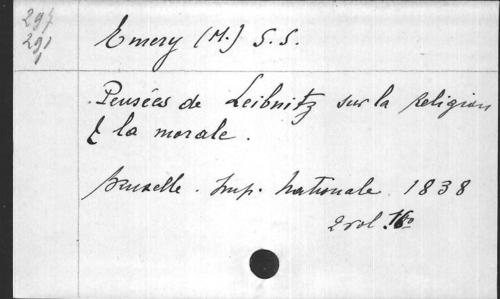 297
291
1
Emery (M.) S.S.
Pensées de Leibnitz sur la religion
& la morale.
bruxelle. Imp. Nationale. 1838
2 vol. 16o